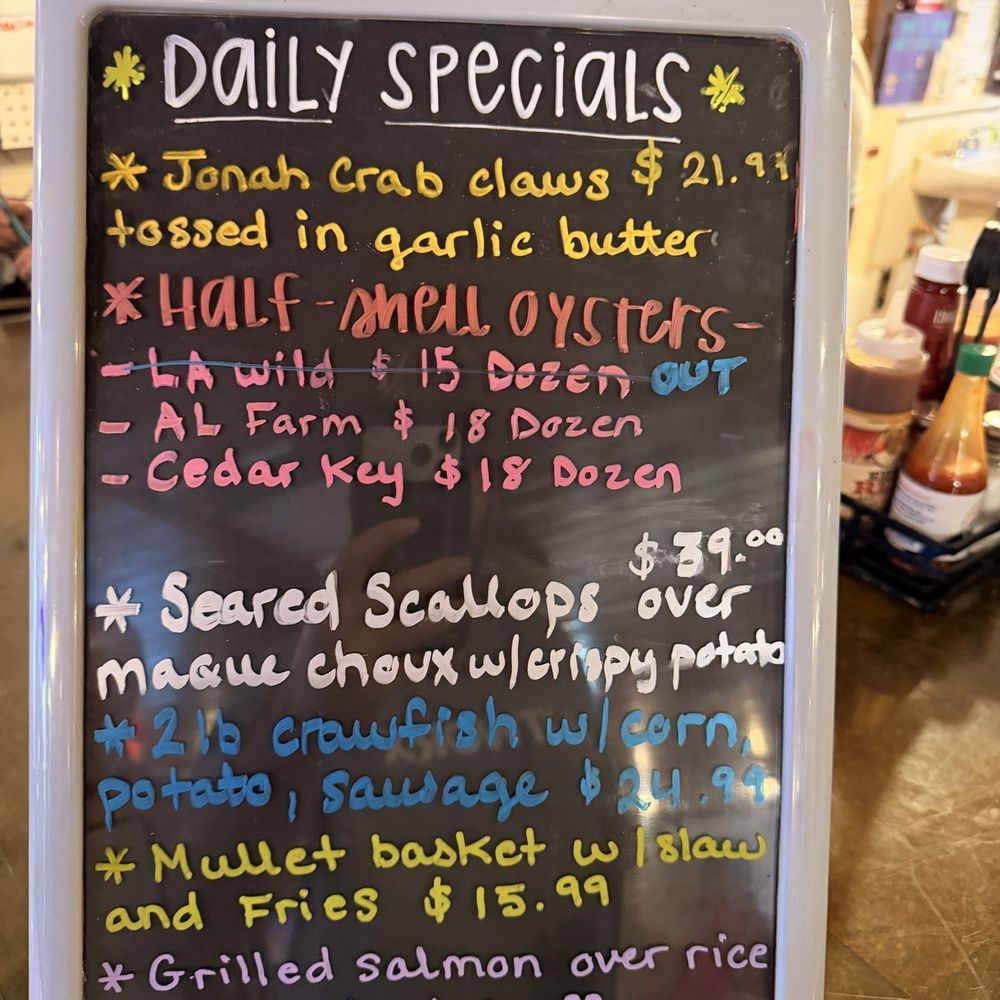 DAILY SPECIALS
* Jonah Crab claws $ 21.99
tossed in garlic butter
* Half-shell oysters-
- LA wild $ 15 Dozen OUT
- AL Farm $ 18 Dozen
- Cedar Key $ 18 Dozen
$ 39.00
* Seared Scallops over
maque choux w/crispy potato
* 2 lb crawfish w/corn,
potato, sausage $ 24.99
* Mullet basket w/slaw
and Fries $ 15.99
* Grilled salmon over rice